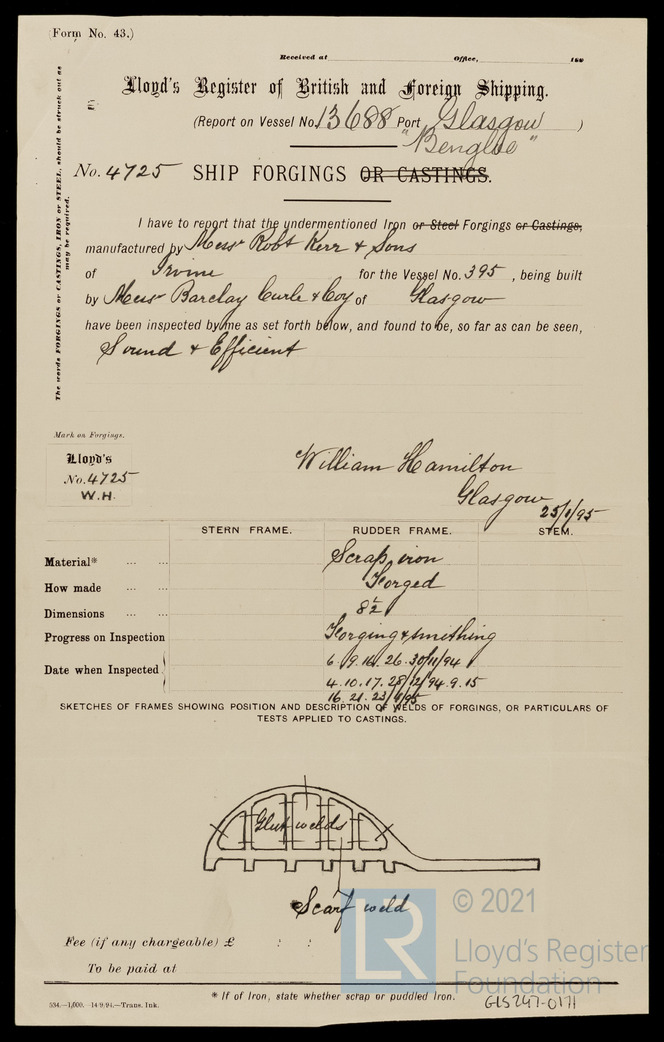 (Form No. 43.)
Received at Office, 188
Lloyd's Register of British and Foreign Shipping.
(Report on Vessel No. 13688 Port Glasgow )
"Bengloe"
No. 4725 SHIP FORGINGS OR CASTINGS.
The words FORGINGS or CASTINGS, IRON or STEEL, should be struck out as
may be required.
I have to report that the undermentioned Iron or Steel Forgings or Castings,
manufactured by Messrs Robt Kerr & Sons
of Irvine for the Vessel No. 395, being built
by Messrs Barclay Curle & Coy of Glasgow
have been inspected by me as set forth below, and found to be, so far as can be seen,
Sound & Efficient
Mark on Forgings.
Lloyd's
No. 4725
W.H.
William Hamilton
Glasgow
25/1/95
STERN FRAME. RUDDER FRAME. STEM.
Material* ... ... Scrap iron
How made ... ... Forged
Dimensions ... ... 8½
Progress on Inspection Forging & smithing
Date when Inspected 6. 9. 14. 26. 30/11/94
4. 10. 17. 28/12/94. 9. 15
16. 21. 23/1/95
SKETCHES OF FRAMES SHOWING POSITION AND DESCRIPTION OF WELDS OF FORGINGS, OR PARTICULARS OF
TESTS APPLIED TO CASTINGS.
Glut welds
Scarf weld
Fee (if any chargeable) £ : :
To be paid at
* If of Iron, state whether scrap or puddled Iron.
534.—1,000. 14/9/94.—Trans. Ink.
GLS247-0171
LR
© 2021
Lloyd's Register
Foundation